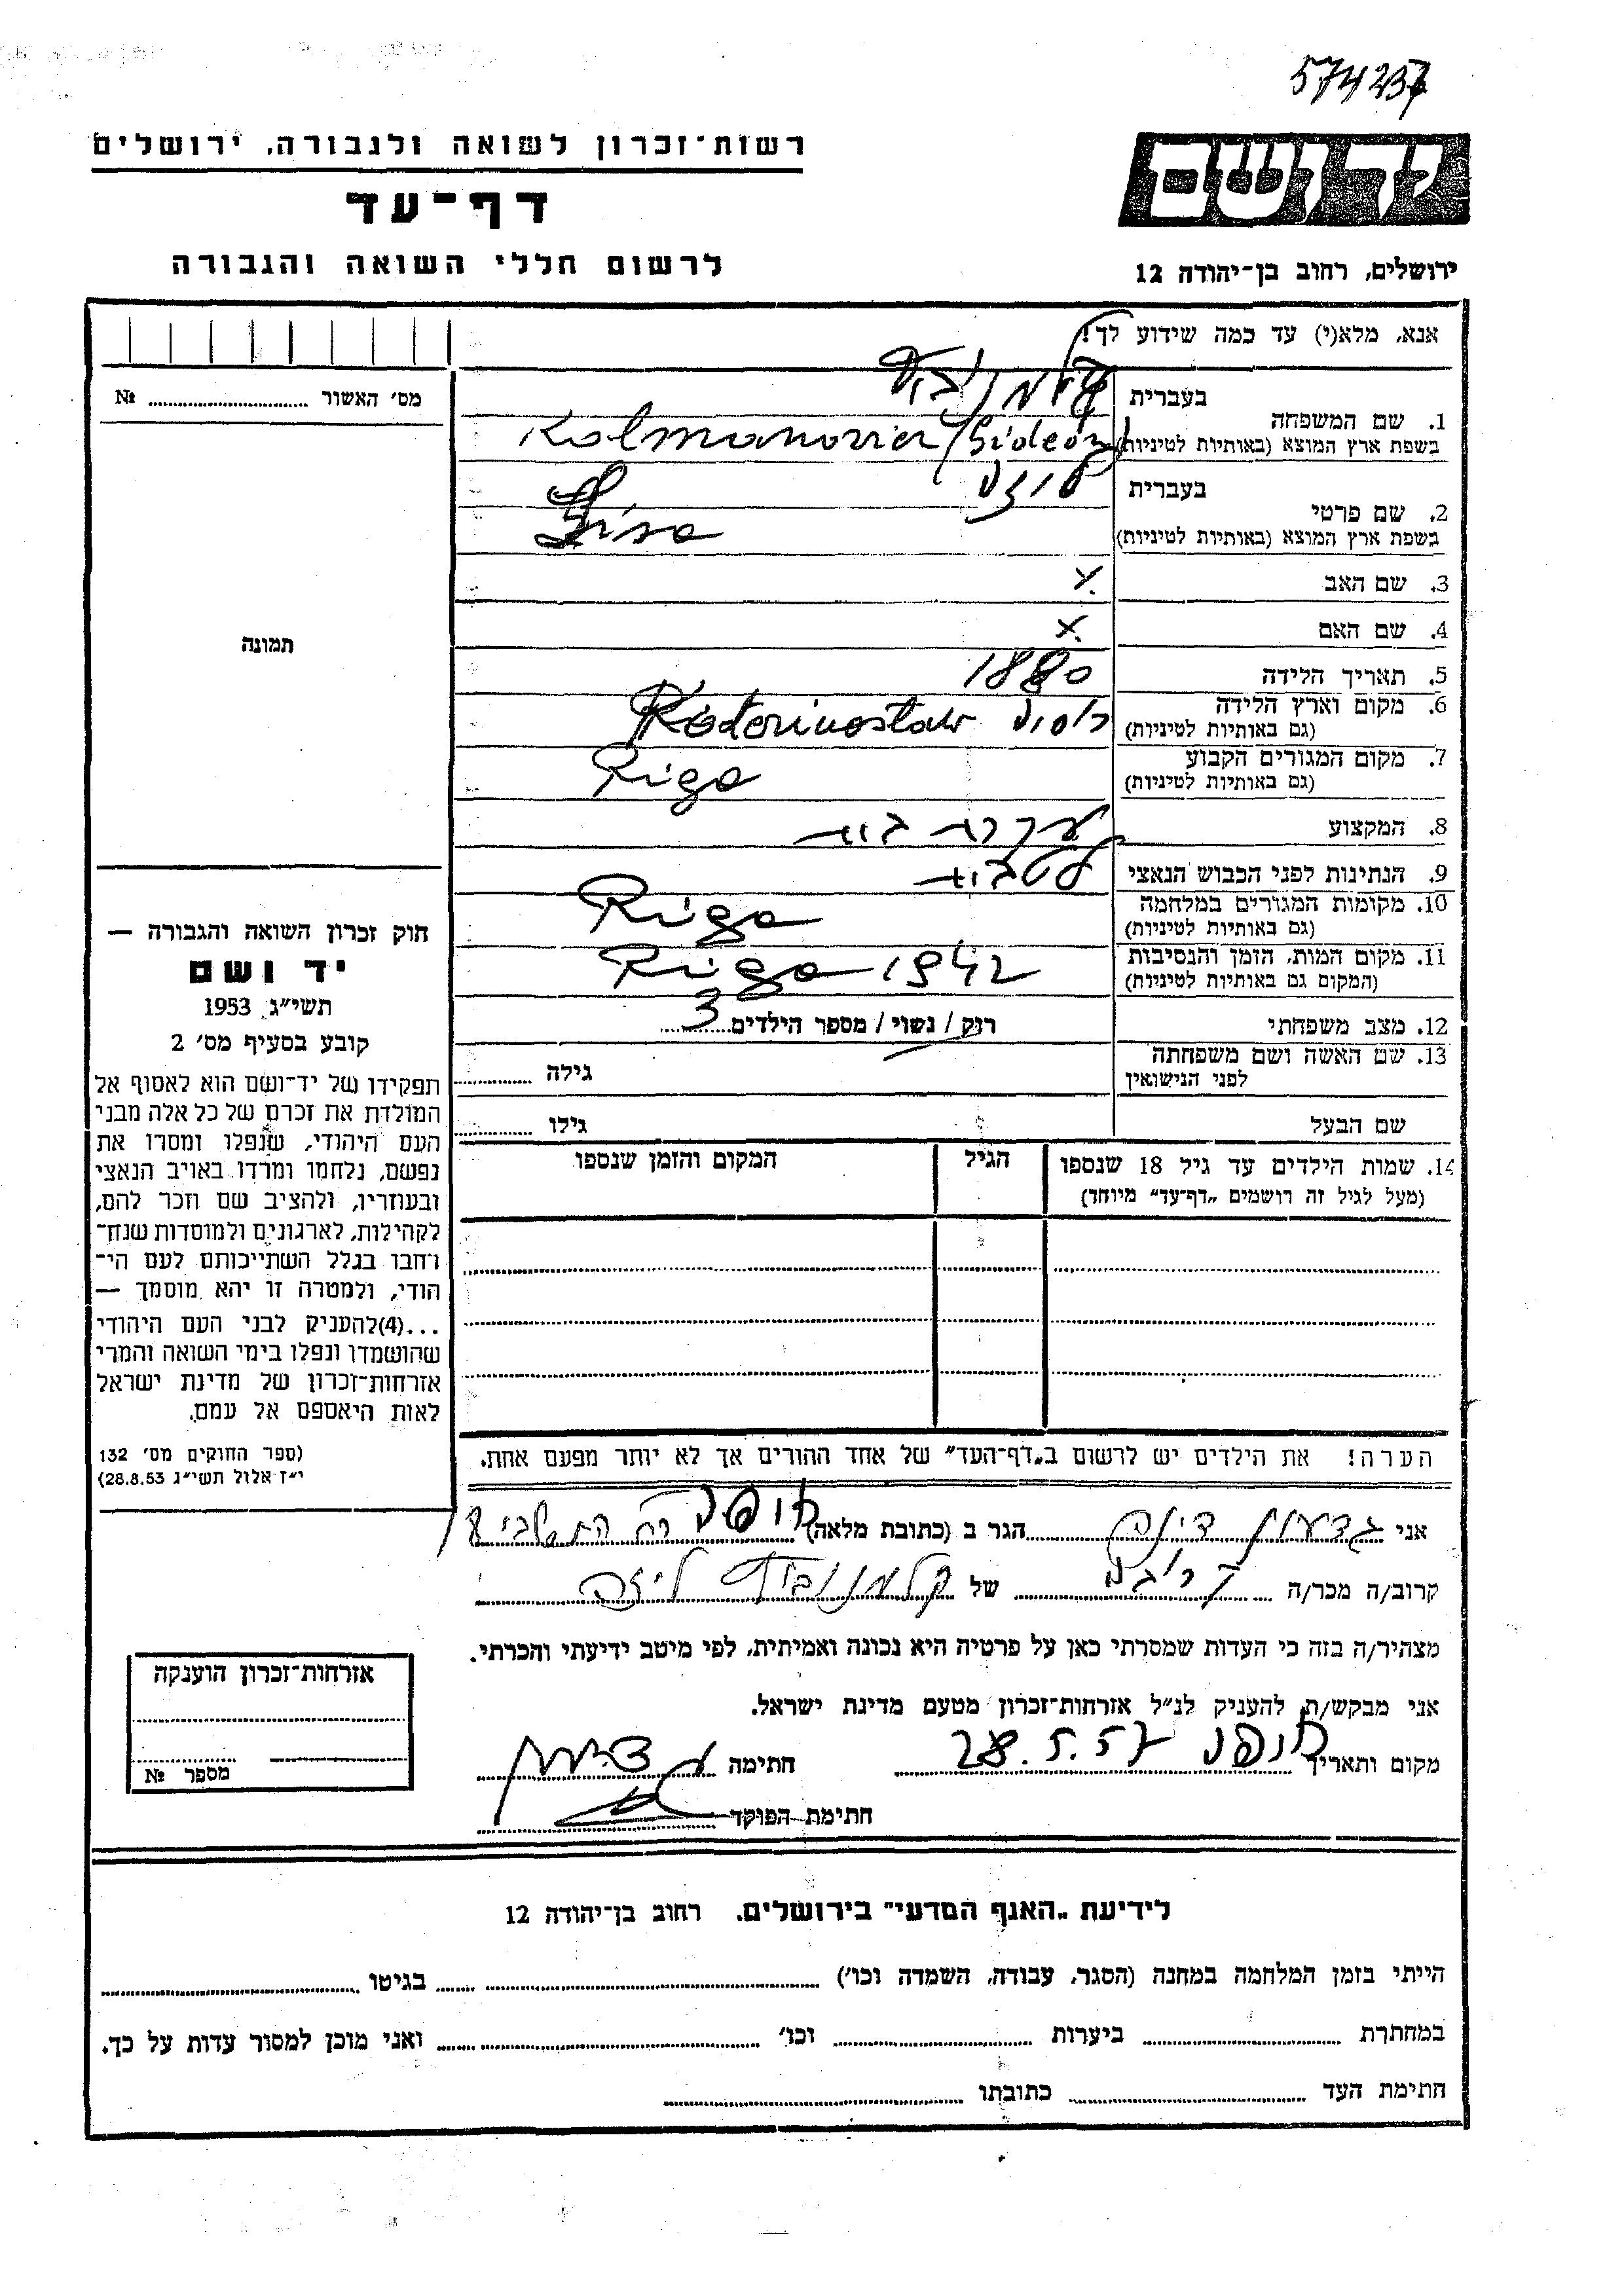 574237
רשות־זכרון לשואה ולגבורה, ירושלים
דף־עד
לרשום חללי השואה והגבורה
יד ושם
ירושלים, רחוב בן־יהודה 12
אנא, מלא(י) עד כמה שידוע לך!
מס׳ האשור ............ №
1. שם המשפחה
בעברית
קלמנוביץ
בשפת ארץ המוצא (באותיות לטיניות)
Kalmanovier / Gideon
2. שם פרטי
בעברית
ליזה
בשפת ארץ המוצא (באותיות לטיניות)
Lisa
3. שם האב x
4. שם האם x
5. תאריך הלידה 1880
6. מקום וארץ הלידה
(גם באותיות לטיניות)
רוסיה Katerinoslaw
7. מקום המגורים הקבוע
(גם באותיות לטיניות)
Riga
8. המקצוע עקרת בית
9. הנתינות לפני הכבוש הנאצי לטבית
10. מקומות המגורים במלחמה
(גם באותיות לטיניות)
Riga
11. מקום המות, הזמן והנסיבות
(המקום גם באותיות לטיניות)
Riga 1942
12. מצב משפחתי רוק / נשוי / מספר הילדים 3
13. שם האשה ושם משפחתה
לפני הנישואין
גילה
שם הבעל
גילו
14. שמות הילדים עד גיל 18 שנספו
(מעל לגיל זה רושמים „דף־עד” מיוחד)
הגיל
המקום והזמן שנספו
הערה! את הילדים יש לרשום ב„דף־העד” של אחד ההורים אך לא יותר מפעם אחת.
תמונה
חוק זכרון השואה והגבורה —
יד ושם
תשי״ג 1953
קובע בסעיף מס׳ 2
תפקידו של יד־ושם הוא לאסוף אל
המולדת את זכרם של כל אלה מבני
העם היהודי, שנפלו ומסרו את
נפשם, נלחמו ומרדו באויב הנאצי
ובעוזריו, ולהציב שם וזכר להם,
לקהילות, לארגונים ולמוסדות שנח־
רחבו בגלל השתייכותם לעם הי־
הודי, ולמטרה זו יהא מוסמך —
...(4)להעניק לבני העם היהודי
שהושמדו ונפלו בימי השואה והמרי
אזרחות־זכרון של מדינת ישראל
לאות היאספם אל עמם.
(ספר החוקים מס׳ 132
י״ז אלול תשי״ג 28.8.53)
אני גדעון דינה הגר ב (כתובת מלאה) חיפה רח
קרוב/ה מכר/ה של קלמנוביץ ליזה
מצהיר/ה בזה כי העדות שמסרתי כאן על פרטיה היא נכונה ואמיתית, לפי מיטב ידיעתי והכרתי.
אני מבקש/ת להעניק לנ״ל אזרחות־זכרון מטעם מדינת ישראל.
מקום ותאריך חיפה 28.5.57 חתימה
חתימת הפוקד
אזרחות־זכרון הוענקה
מספר №
לידיעת „האגף המדעי” בירושלים, רחוב בן־יהודה 12
הייתי בזמן המלחמה במחנה (הסגר, עבודה, השמדה וכו׳) ............ בגיטו ............
במחתרת ............ ביערות ............ וכו׳ ............ ואני מוכן למסור עדות על כך.
חתימת העד ............ כתובתו ............